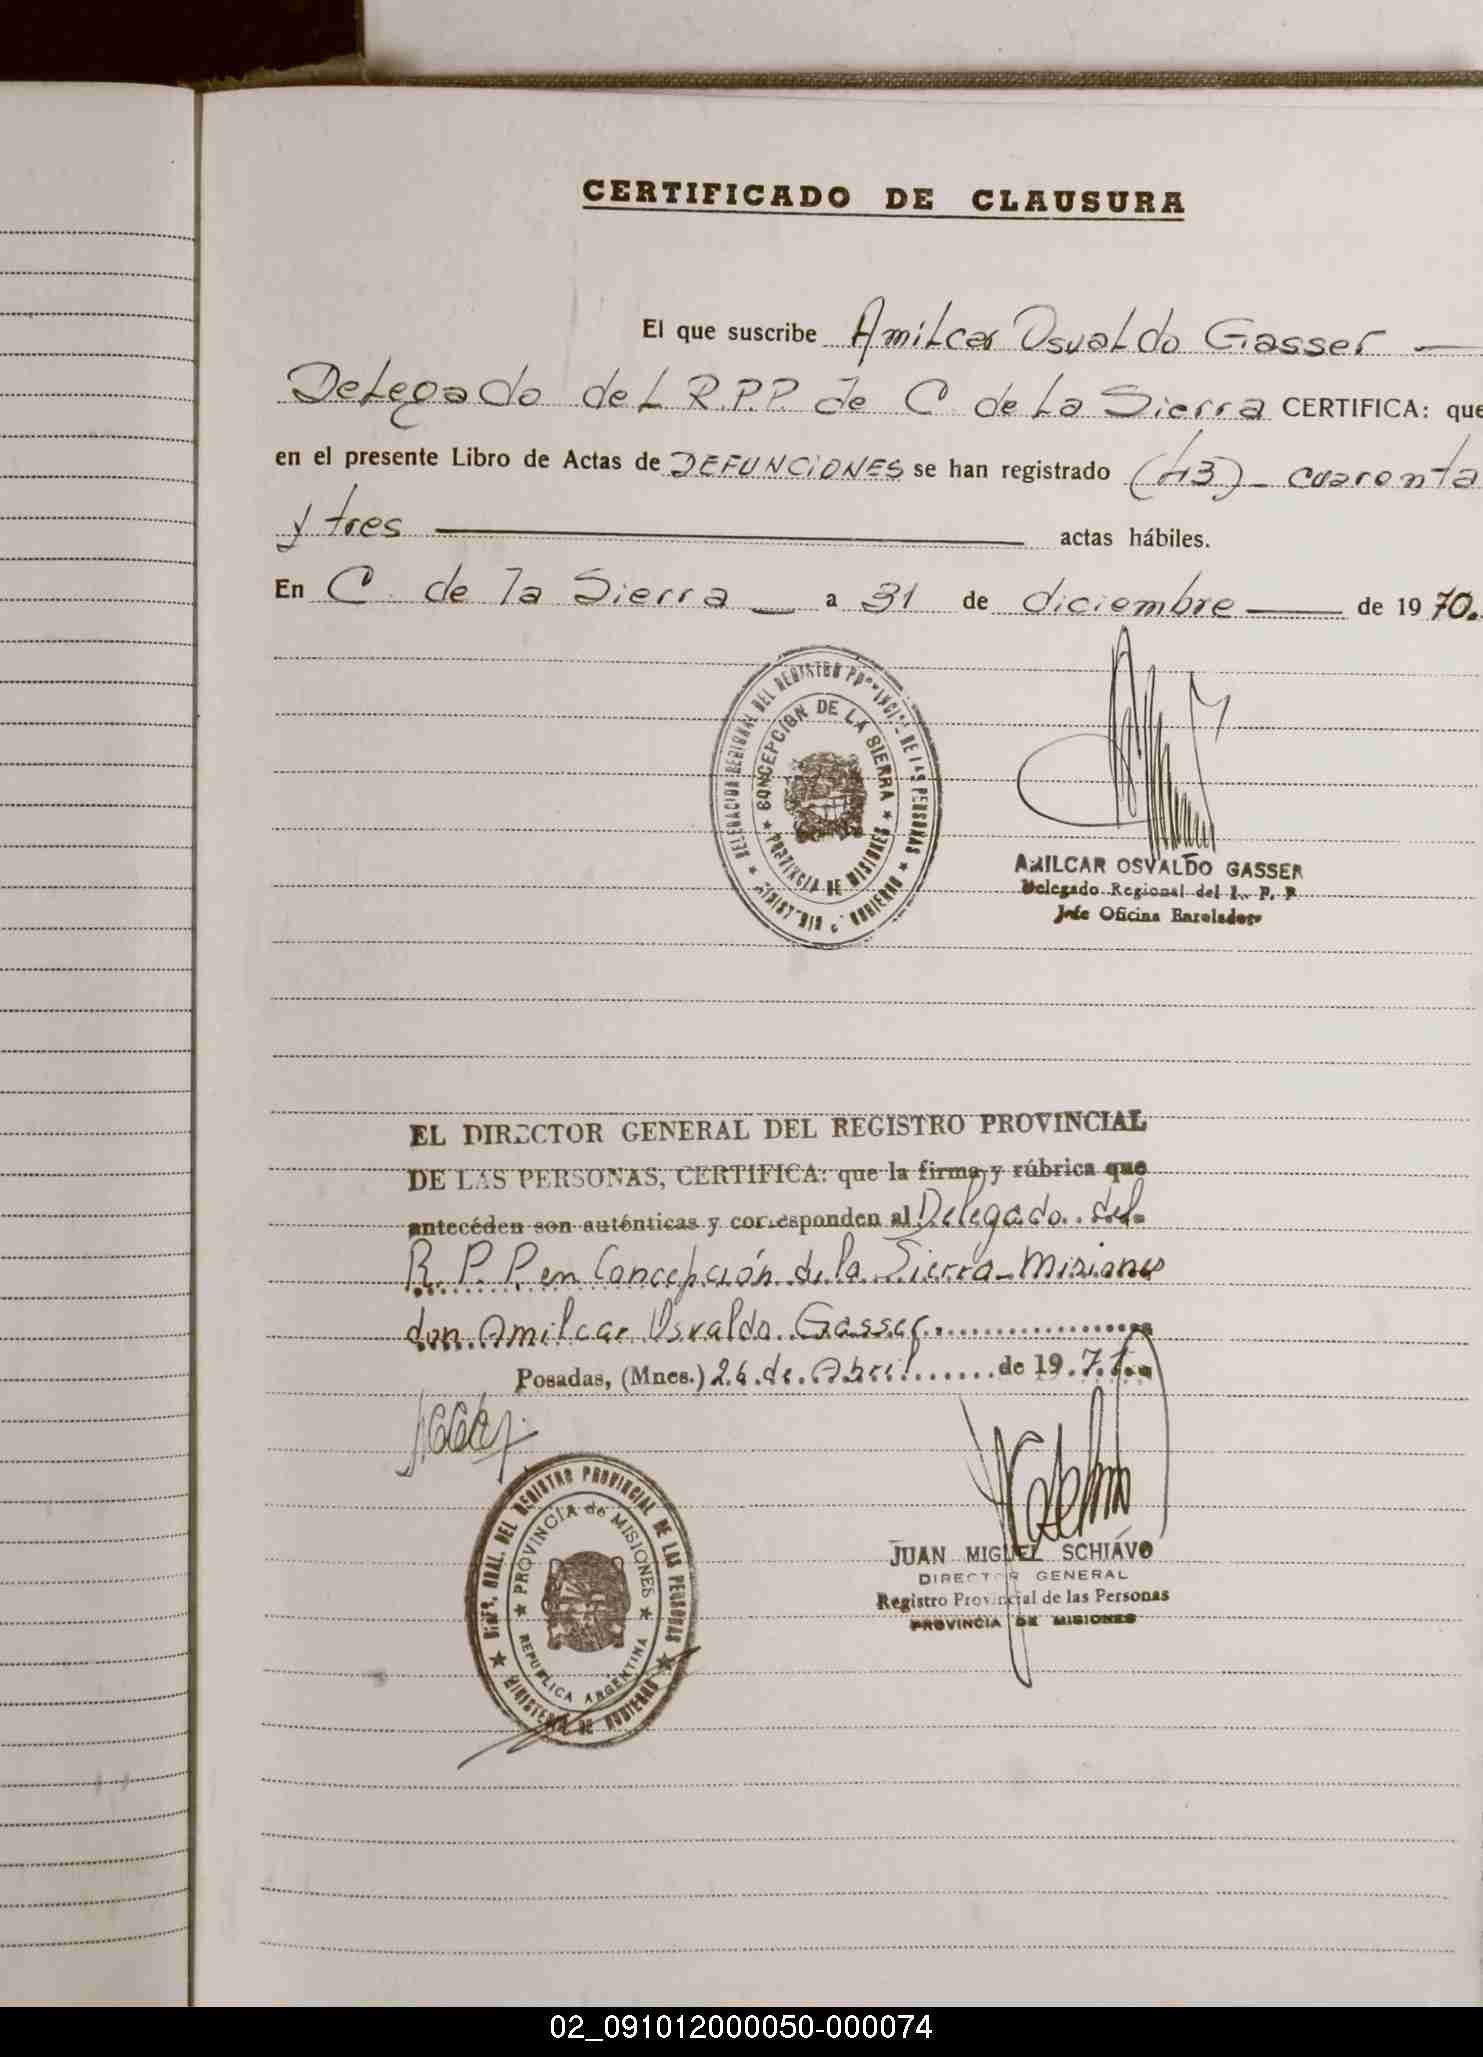 CERTIFICADO DE CLAUSURA
El que suscribe Amilcar Osvaldo Gasser
Delegado del R.P.P. de C. de La Sierra CERTIFICA: que
en el presente Libro de Actas de DEFUNCIONES se han registrado (43) - cuarenta
y tres actas hábiles.
En C. de la Sierra a 31 de diciembre de 1970.
DELEGACION REGIONAL DEL REGISTRO PROVINCIAL DE LAS PERSONAS
CONCEPCION DE LA SIERRA
PROVINCIA DE MISIONES
AMILCAR OSVALDO GASSER
Delegado Regional del R. P. P
Jefe Oficina Enroladora
EL DIRECTOR GENERAL DEL REGISTRO PROVINCIAL
DE LAS PERSONAS, CERTIFICA: que la firma y rúbrica que
antecéden son auténticas y corresponden al Delegado del
R. P. P. en Concepción de la Sierra - Misiones
don Amilcar Osvaldo Gasser
Posadas, (Mnes.) 26 de Abril de 1971
DIREC. GRAL. DEL REGISTRO PROVINCIAL DE LAS PERSONAS
PROVINCIA de MISIONES
REPUBLICA ARGENTINA
MINISTERIO DE GOBIERNO
JUAN MIGUEL SCHIAVO
DIRECTOR GENERAL
Registro Provincial de las Personas
PROVINCIA DE MISIONES
02_091012000050-000074